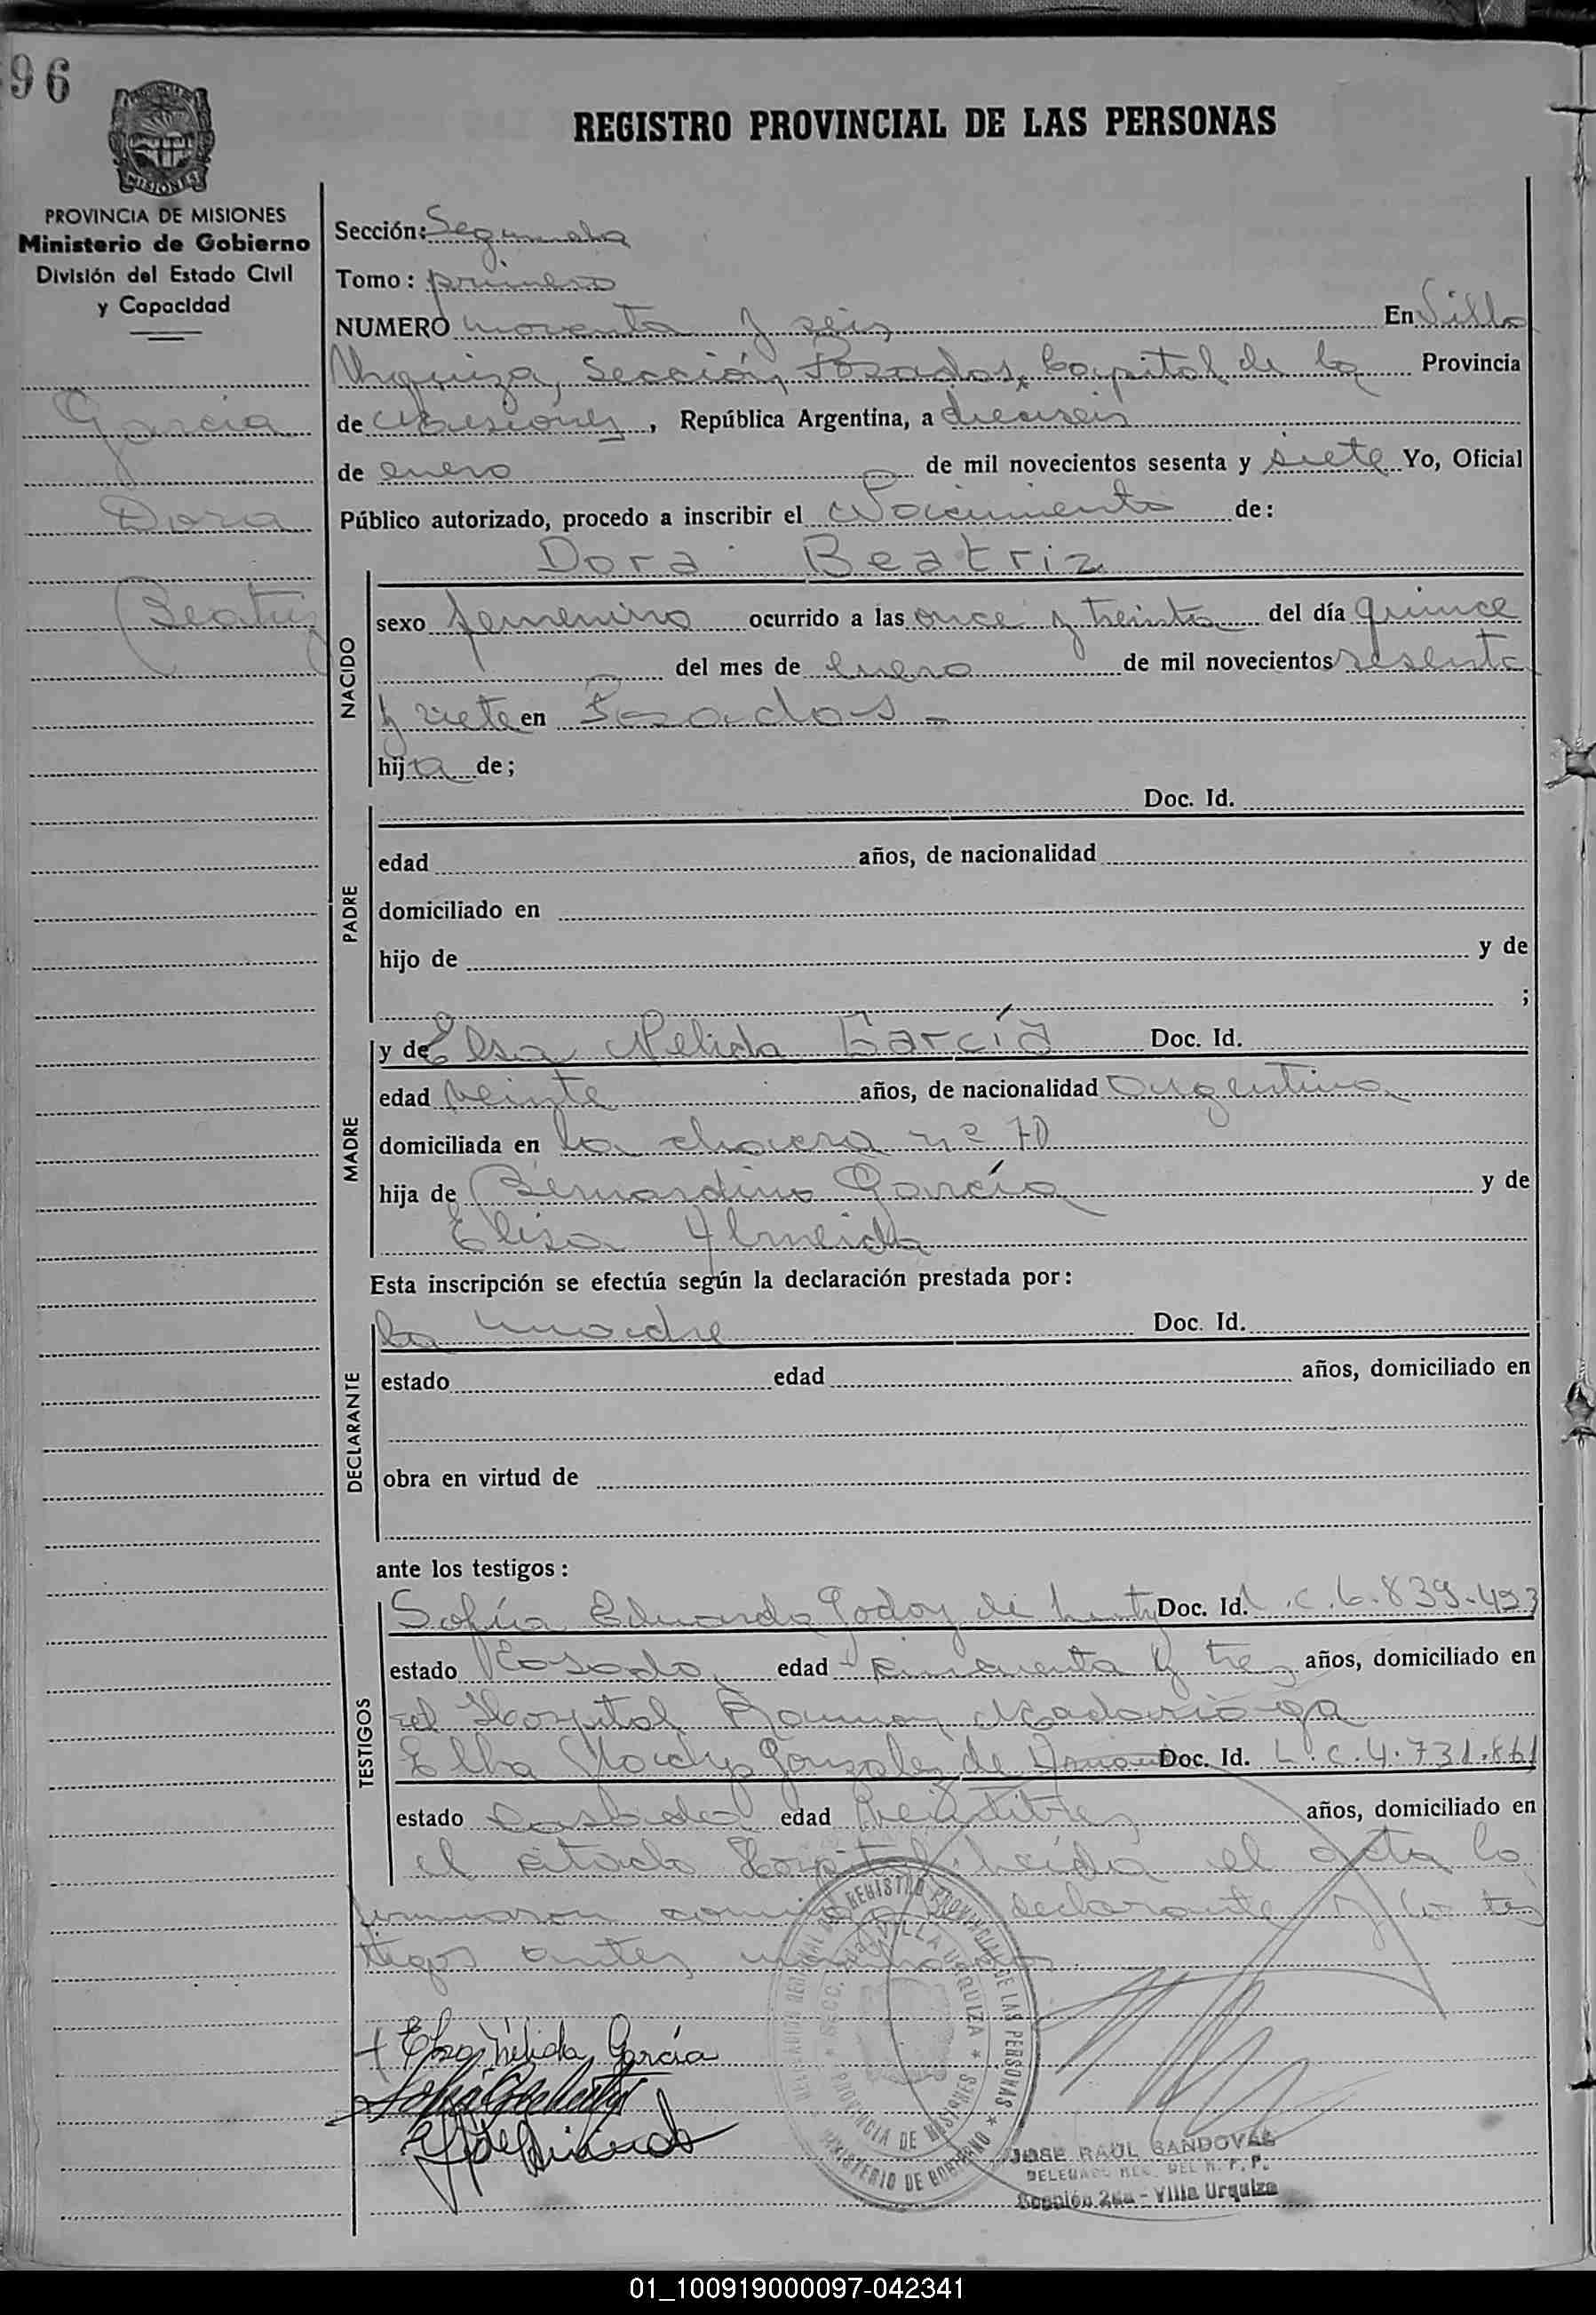 96
REGISTRO PROVINCIAL DE LAS PERSONAS
MISIONES
PROVINCIA DE MISIONES
Ministerio de Gobierno
División del Estado Civil
y Capacidad
García
Dora
Beatriz
Sección: Segunda
Tomo: primero
NUMERO noventa y seis En Villa
Urquiza, Sección Posadas, Capital de la Provincia
de Misiones, República Argentina, a dieciseis
de enero de mil novecientos sesenta y siete Yo, Oficial
Público autorizado, procedo a inscribir el Nacimiento de:
Dora Beatriz
NACIDO
sexo femenino ocurrido a las once y treinta del día quince
del mes de enero de mil novecientos sesenta
y siete en Posadas.-
hija de;
PADRE
Doc. Id.
edad años, de nacionalidad
domiciliado en
hijo de y de
;
MADRE
y de Elsa Nelida García Doc. Id.
edad veinte años, de nacionalidad Argentina
domiciliada en la chacra nº 70
hija de Bernardino García y de
Elisa Almeida
Esta inscripción se efectúa según la declaración prestada por:
DECLARANTE
la madre Doc. Id.
estado edad años, domiciliado en
obra en virtud de
ante los testigos:
TESTIGOS
Sofía Eduarda Godoy de Doc. Id. L.C.6.839.493
estado Casada edad cincuenta y tres años, domiciliado en
el Hospital Ramon Madariaga
Elba Gonzalez de Doc. Id. L.C.4.731.861
estado casada edad veintitres años, domiciliado en
el citado Hospital leída el acta la
firmaron conmigo la declarante y los tes
tigos antes
Elsa Nélida García
REGISTRO PROVINCIAL DE LAS PERSONAS * MINISTERIO DE GOBIERNO
SECC. 2da VILLA URQUIZA * PROVINCIA DE MISIONES *
JOSE RAUL SANDOVAL
DELEGADO REG. DEL R. P. P.
Sección 2da - Villa Urquiza
01_100919000097-042341